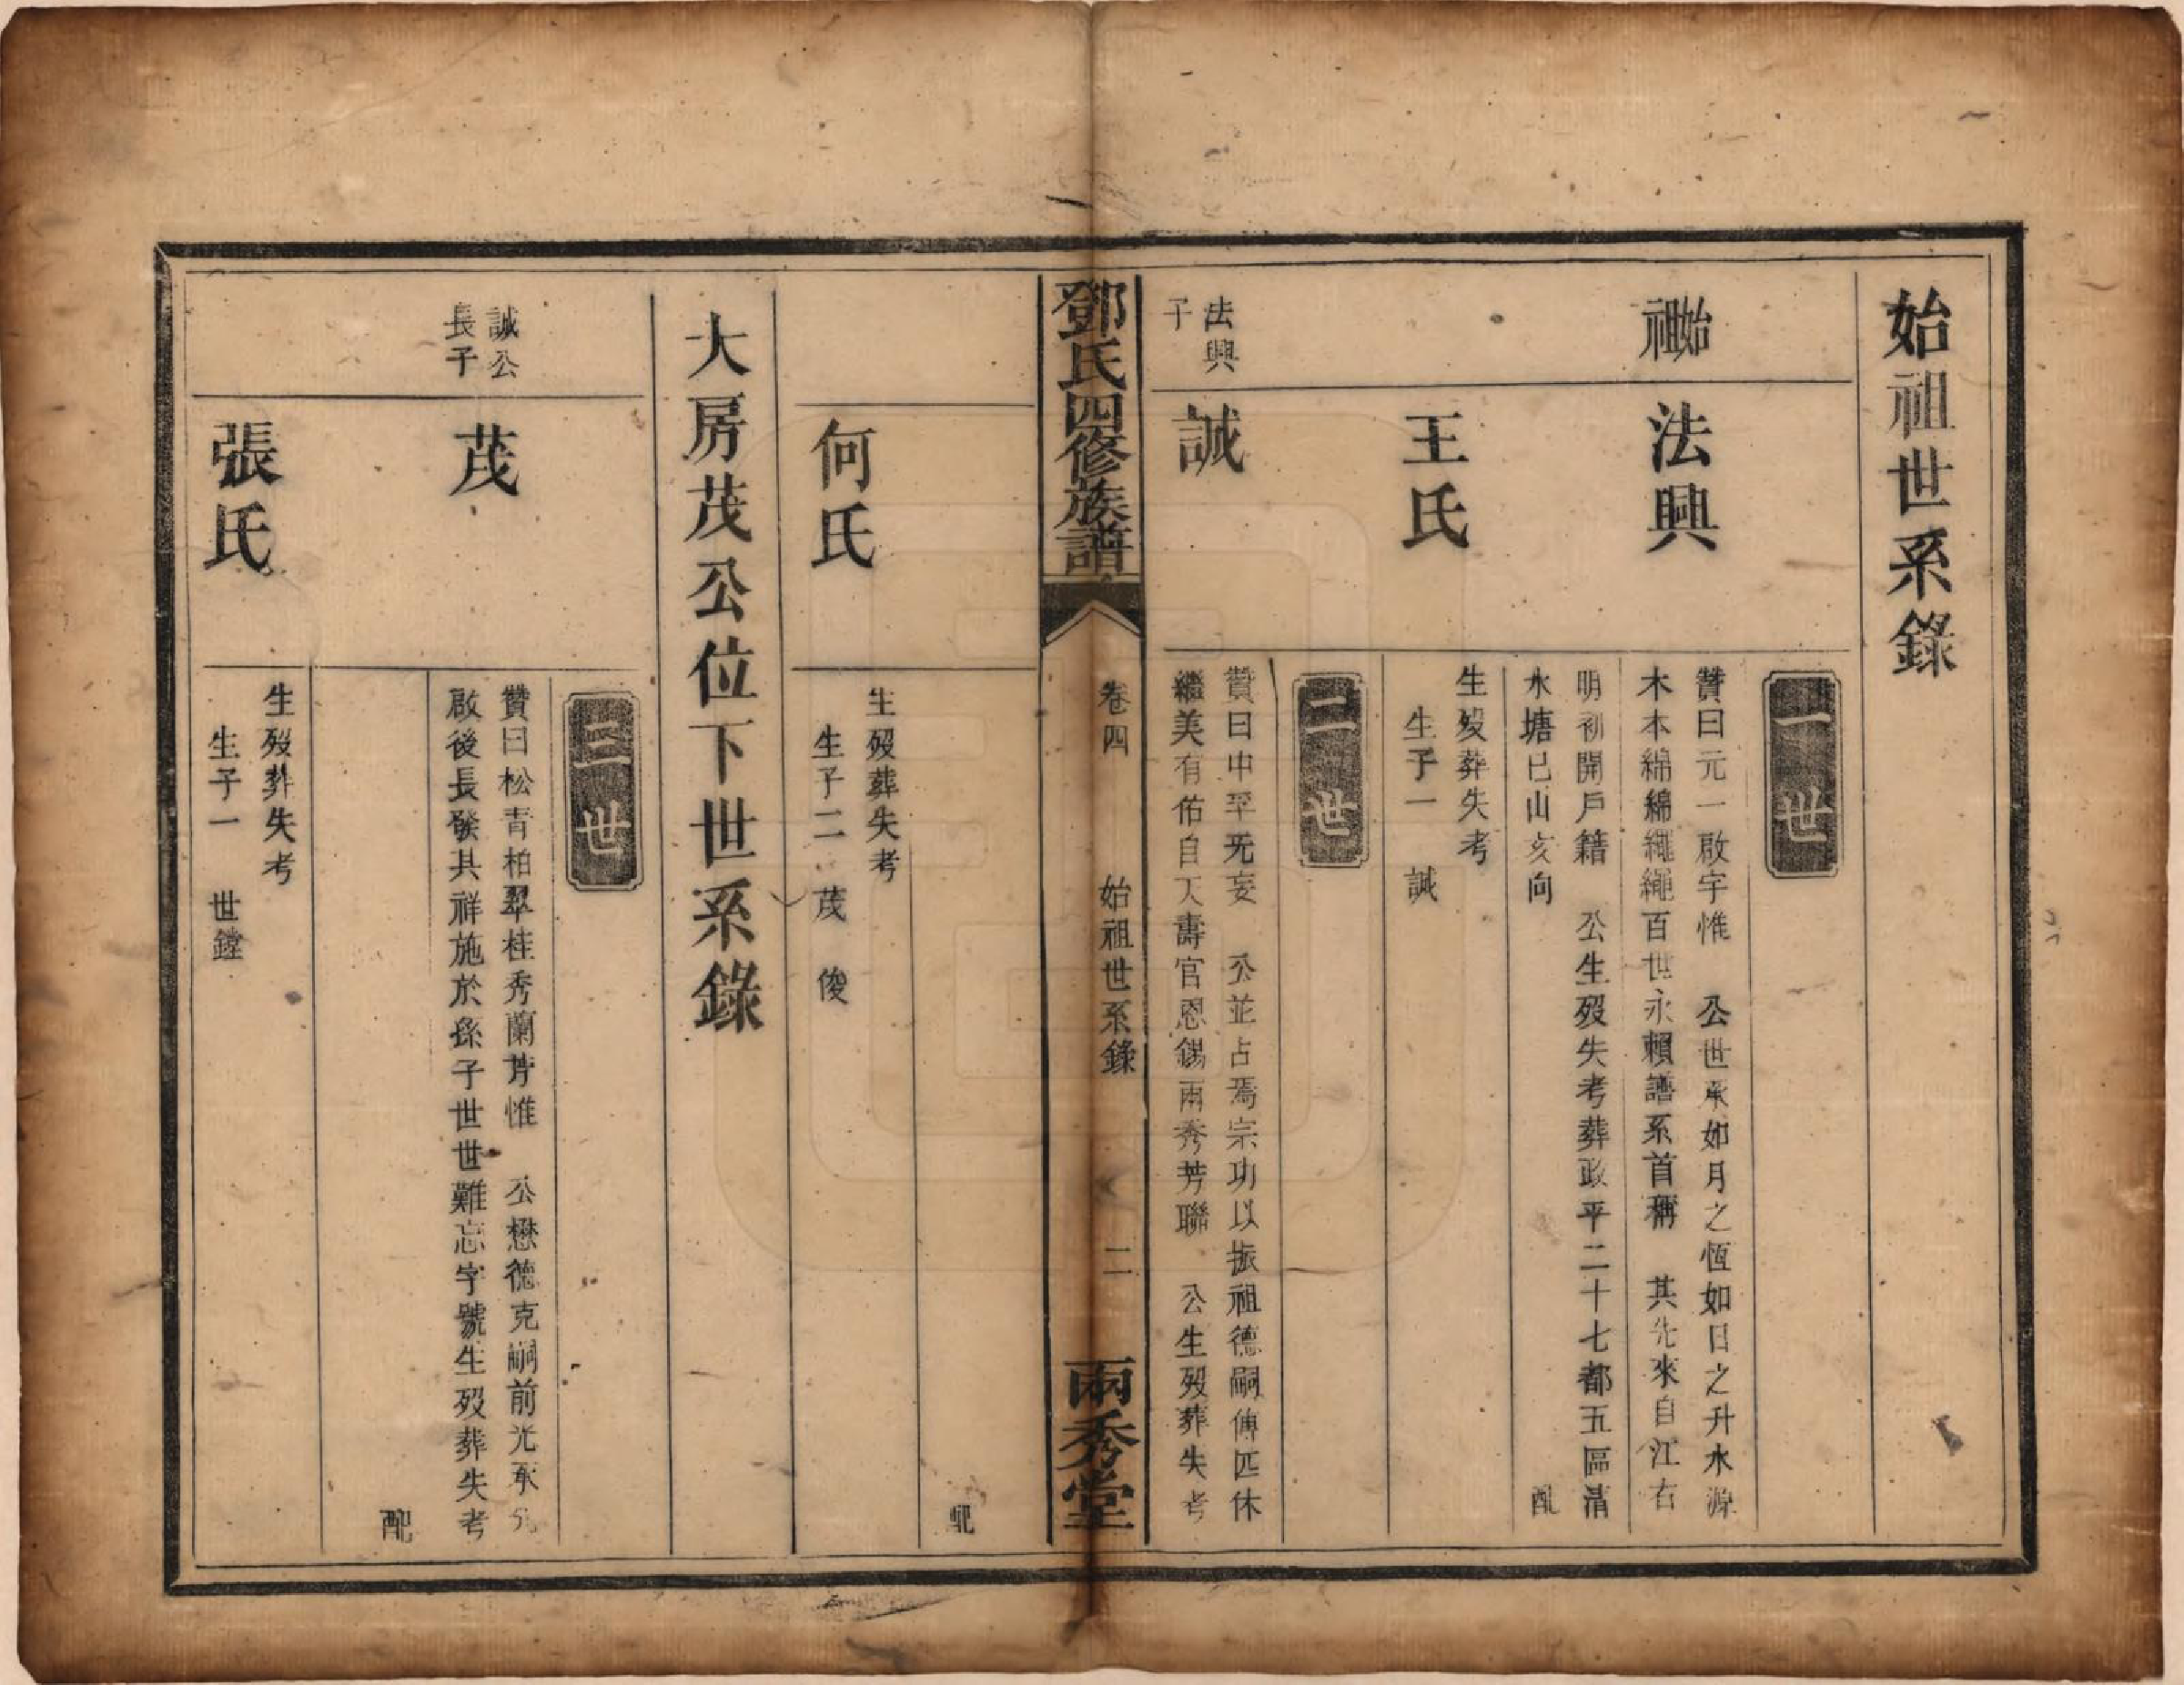 始祖世系錄
一世
始祖
法興
贊曰元一啟宇惟　公世承如月之恆如日之升水源
木本綿綿繩繩百世永賴譜系首稱　其先來自江右
明初開戶籍　公生歿失考葬政平二十七都五區清
水塘巳山亥向　配
王氏
生歿葬失考
生子一　誠
二世
法興
子
誠
贊曰中孚旡妄　公並占焉宗功以振祖德嗣傳匹休
繼美有佑自天壽官恩錫兩秀芳聯　公生歿葬失考
鄧氏四修族譜
卷四　始祖世系錄　二
兩秀堂
配
何氏
生歿葬失考
生子二　茂　俊
大房茂公位下世系錄
三世
誠公
長子
茂
贊曰松青柏翠桂秀蘭芳惟　公懋德克嗣前光承先
啟後長發其祥施於孫子世世難忘字號生歿葬失考
配
張氏
生歿葬失考
生子一　世鏜